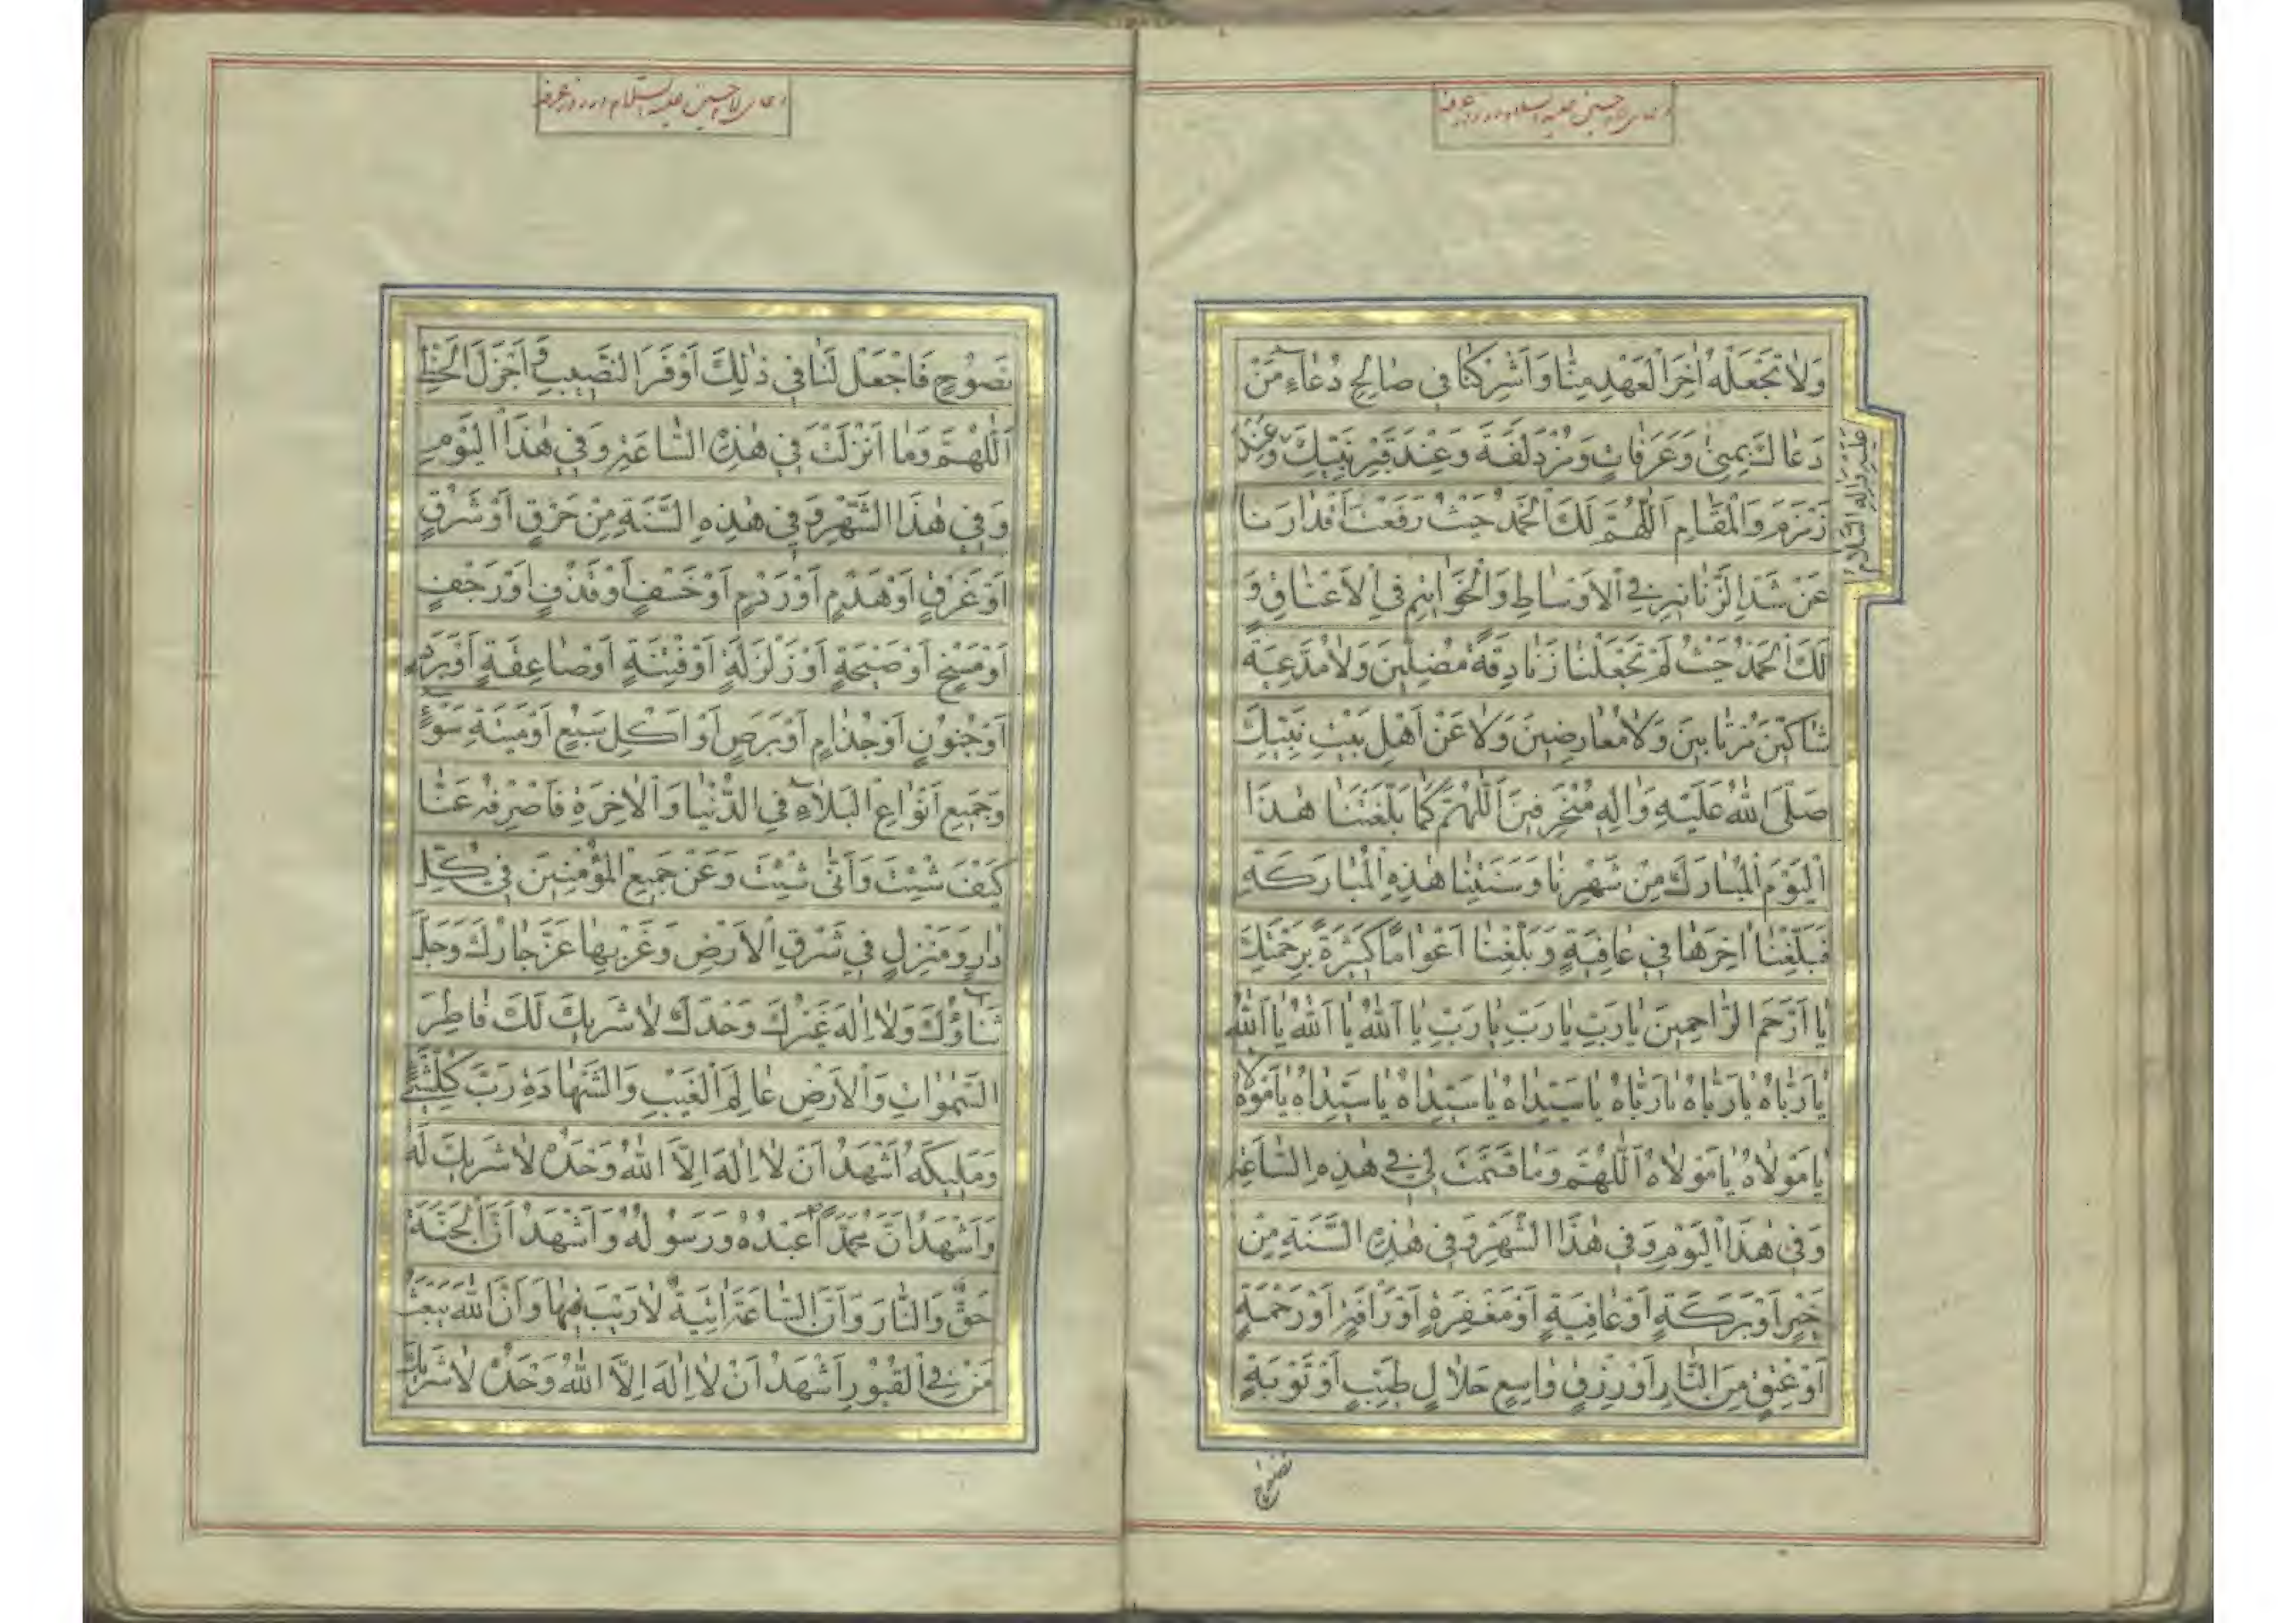 دعای امام حسین علیه السلام در روز عرفه
وَلَا تَجْعَلْهُ اٰخِرَ الْعَهْدِ مِنَّا وَاَشْرِكْنَا فِي صَالِحِ دُعَاءِ مَنْ
دَعَاكَ بِمِنىٰ وَعَرَفَاتٍ وَمُزْدَلَفَةَ وَعِنْدَ قَبْرِ نَبِيِّكَ وَعِنْدَ
عليه واله السلام
زَمْزَمَ وَالْمَقَامِ اَللّٰهُمَّ لَكَ الْحَمْدُ حَيْثُ رَفَعْتَ اَقْدَارَنَا
عَنْ شَدِّ الزَّنَانِيرِ فِي الْاَوْسَاطِ وَالْخَوَاتِيمِ فِي الْاَعْنَاقِ وَ
لَكَ الْحَمْدُ حَيْثُ لَمْ تَجْعَلْنَا زَنَادِقَةً مُضِلِّينَ وَلَا مُدَّعِيَةً
شَاكِّينَ مُرْتَابِينَ وَلَا مُعَارِضِينَ وَلَا عَنْ اَهْلِ بَيْتِ نَبِيِّكَ
صَلَّى اللهُ عَلَيْهِ وَاٰلِهِ مُنْحَرِفِينَ اَللّٰهُمَّ كَمَا بَلَّغْتَنَا هٰذَا
الْيَوْمَ الْمُبَارَكَ مِنْ شَهْرِنَا وَسَنَتِنَا هٰذِهِ الْمُبَارَكَةِ
فَبَلِّغْنَا اٰخِرَهَا فِي عَافِيَةٍ وَبَلِّغْنَا اَعْوَامًا كَثِيرَةً بِرَحْمَتِكَ
يَا اَرْحَمَ الرَّاحِمِينَ يَا رَبِّ يَا رَبِّ يَا رَبِّ يَا اَللهُ يَا اَللهُ يَا اَللهُ
يَا رَبَّاهُ يَا رَبَّاهُ يَا رَبَّاهُ يَا سَيِّدَاهُ يَا سَيِّدَاهُ يَا سَيِّدَاهُ يَا مَوْلَاهُ
يَا مَوْلَاهُ يَا مَوْلَاهُ اَللّٰهُمَّ وَمَا قَسَمْتَ لِي فِي هٰذِهِ السَّاعَةِ
وَفِي هٰذَا الْيَوْمِ وَفِي هٰذَا الشَّهْرِ وَفِي هٰذِهِ السَّنَةِ مِنْ
خَيْرٍ اَوْ بَرَكَةٍ اَوْ عَافِيَةٍ اَوْ مَغْفِرَةٍ اَوْ رَأْفَةٍ اَوْ رَحْمَةٍ
اَوْ عِتْقٍ مِنَ النَّارِ اَوْ رِزْقٍ وَاسِعٍ حَلَالٍ طَيِّبٍ اَوْ تَوْبَةٍ
نصوح
دعای امام حسین علیه السلام در روز عرفه
نَصُوحٍ فَاجْعَلْ لَنَا فِي ذٰلِكَ اَوْفَرَ النَّصِيبِ وَاَجْزَلَ الْحَظِّ
اَللّٰهُمَّ وَمَا اَنْزَلْتَ فِي هٰذِهِ السَّاعَةِ وَفِي هٰذَا الْيَوْمِ
وَفِي هٰذَا الشَّهْرِ وَفِي هٰذِهِ السَّنَةِ مِنْ حَرْقٍ اَوْ شَرْقٍ
اَوْ غَرْقٍ اَوْ هَدْمٍ اَوْ رَدْمٍ اَوْ خَسْفٍ اَوْ قَذْفٍ اَوْ رَجْفٍ
اَوْ مَسْخٍ اَوْ صَيْحَةٍ اَوْ زَلْزَلَةٍ اَوْ فِتْنَةٍ اَوْ صَاعِقَةٍ اَوْ بَرَدٍ
اَوْ جُنُونٍ اَوْ جُذَامٍ اَوْ بَرَصٍ اَوْ اَكْلِ سَبُعٍ اَوْ مِيتَةِ سَوْءٍ
وَجَمِيعِ اَنْوَاعِ الْبَلَاءِ فِي الدُّنْيَا وَالْاٰخِرَةِ فَاصْرِفْهُ عَنَّا
كَيْفَ شِئْتَ وَاَنّٰى شِئْتَ وَعَنْ جَمِيعِ الْمُؤْمِنِينَ فِي كُلِّ
دَارٍ وَمَنْزِلٍ فِي شَرْقِ الْاَرْضِ وَغَرْبِهَا عَزَّ جَارُكَ وَجَلَّ
ثَنَاؤُكَ وَلَا اِلٰهَ غَيْرُكَ وَحْدَكَ لَا شَرِيكَ لَكَ فَاطِرَ
السَّمٰوَاتِ وَالْاَرْضِ عَالِمَ الْغَيْبِ وَالشَّهَادَةِ رَبَّ كُلِّ شَيْءٍ
وَمَلِيكَهُ اَشْهَدُ اَنْ لَا اِلٰهَ اِلَّا اللهُ وَحْدَهُ لَا شَرِيكَ لَهُ
وَاَشْهَدُ اَنَّ مُحَمَّدًا عَبْدُهُ وَرَسُولُهُ وَاَشْهَدُ اَنَّ الْجَنَّةَ
حَقٌّ وَالنَّارَ وَاَنَّ السَّاعَةَ اٰتِيَةٌ لَا رَيْبَ فِيهَا وَاَنَّ اللهَ يَبْعَثُ
مَنْ فِي الْقُبُورِ اَشْهَدُ اَنْ لَا اِلٰهَ اِلَّا اللهُ وَحْدَهُ لَا شَرِيكَ